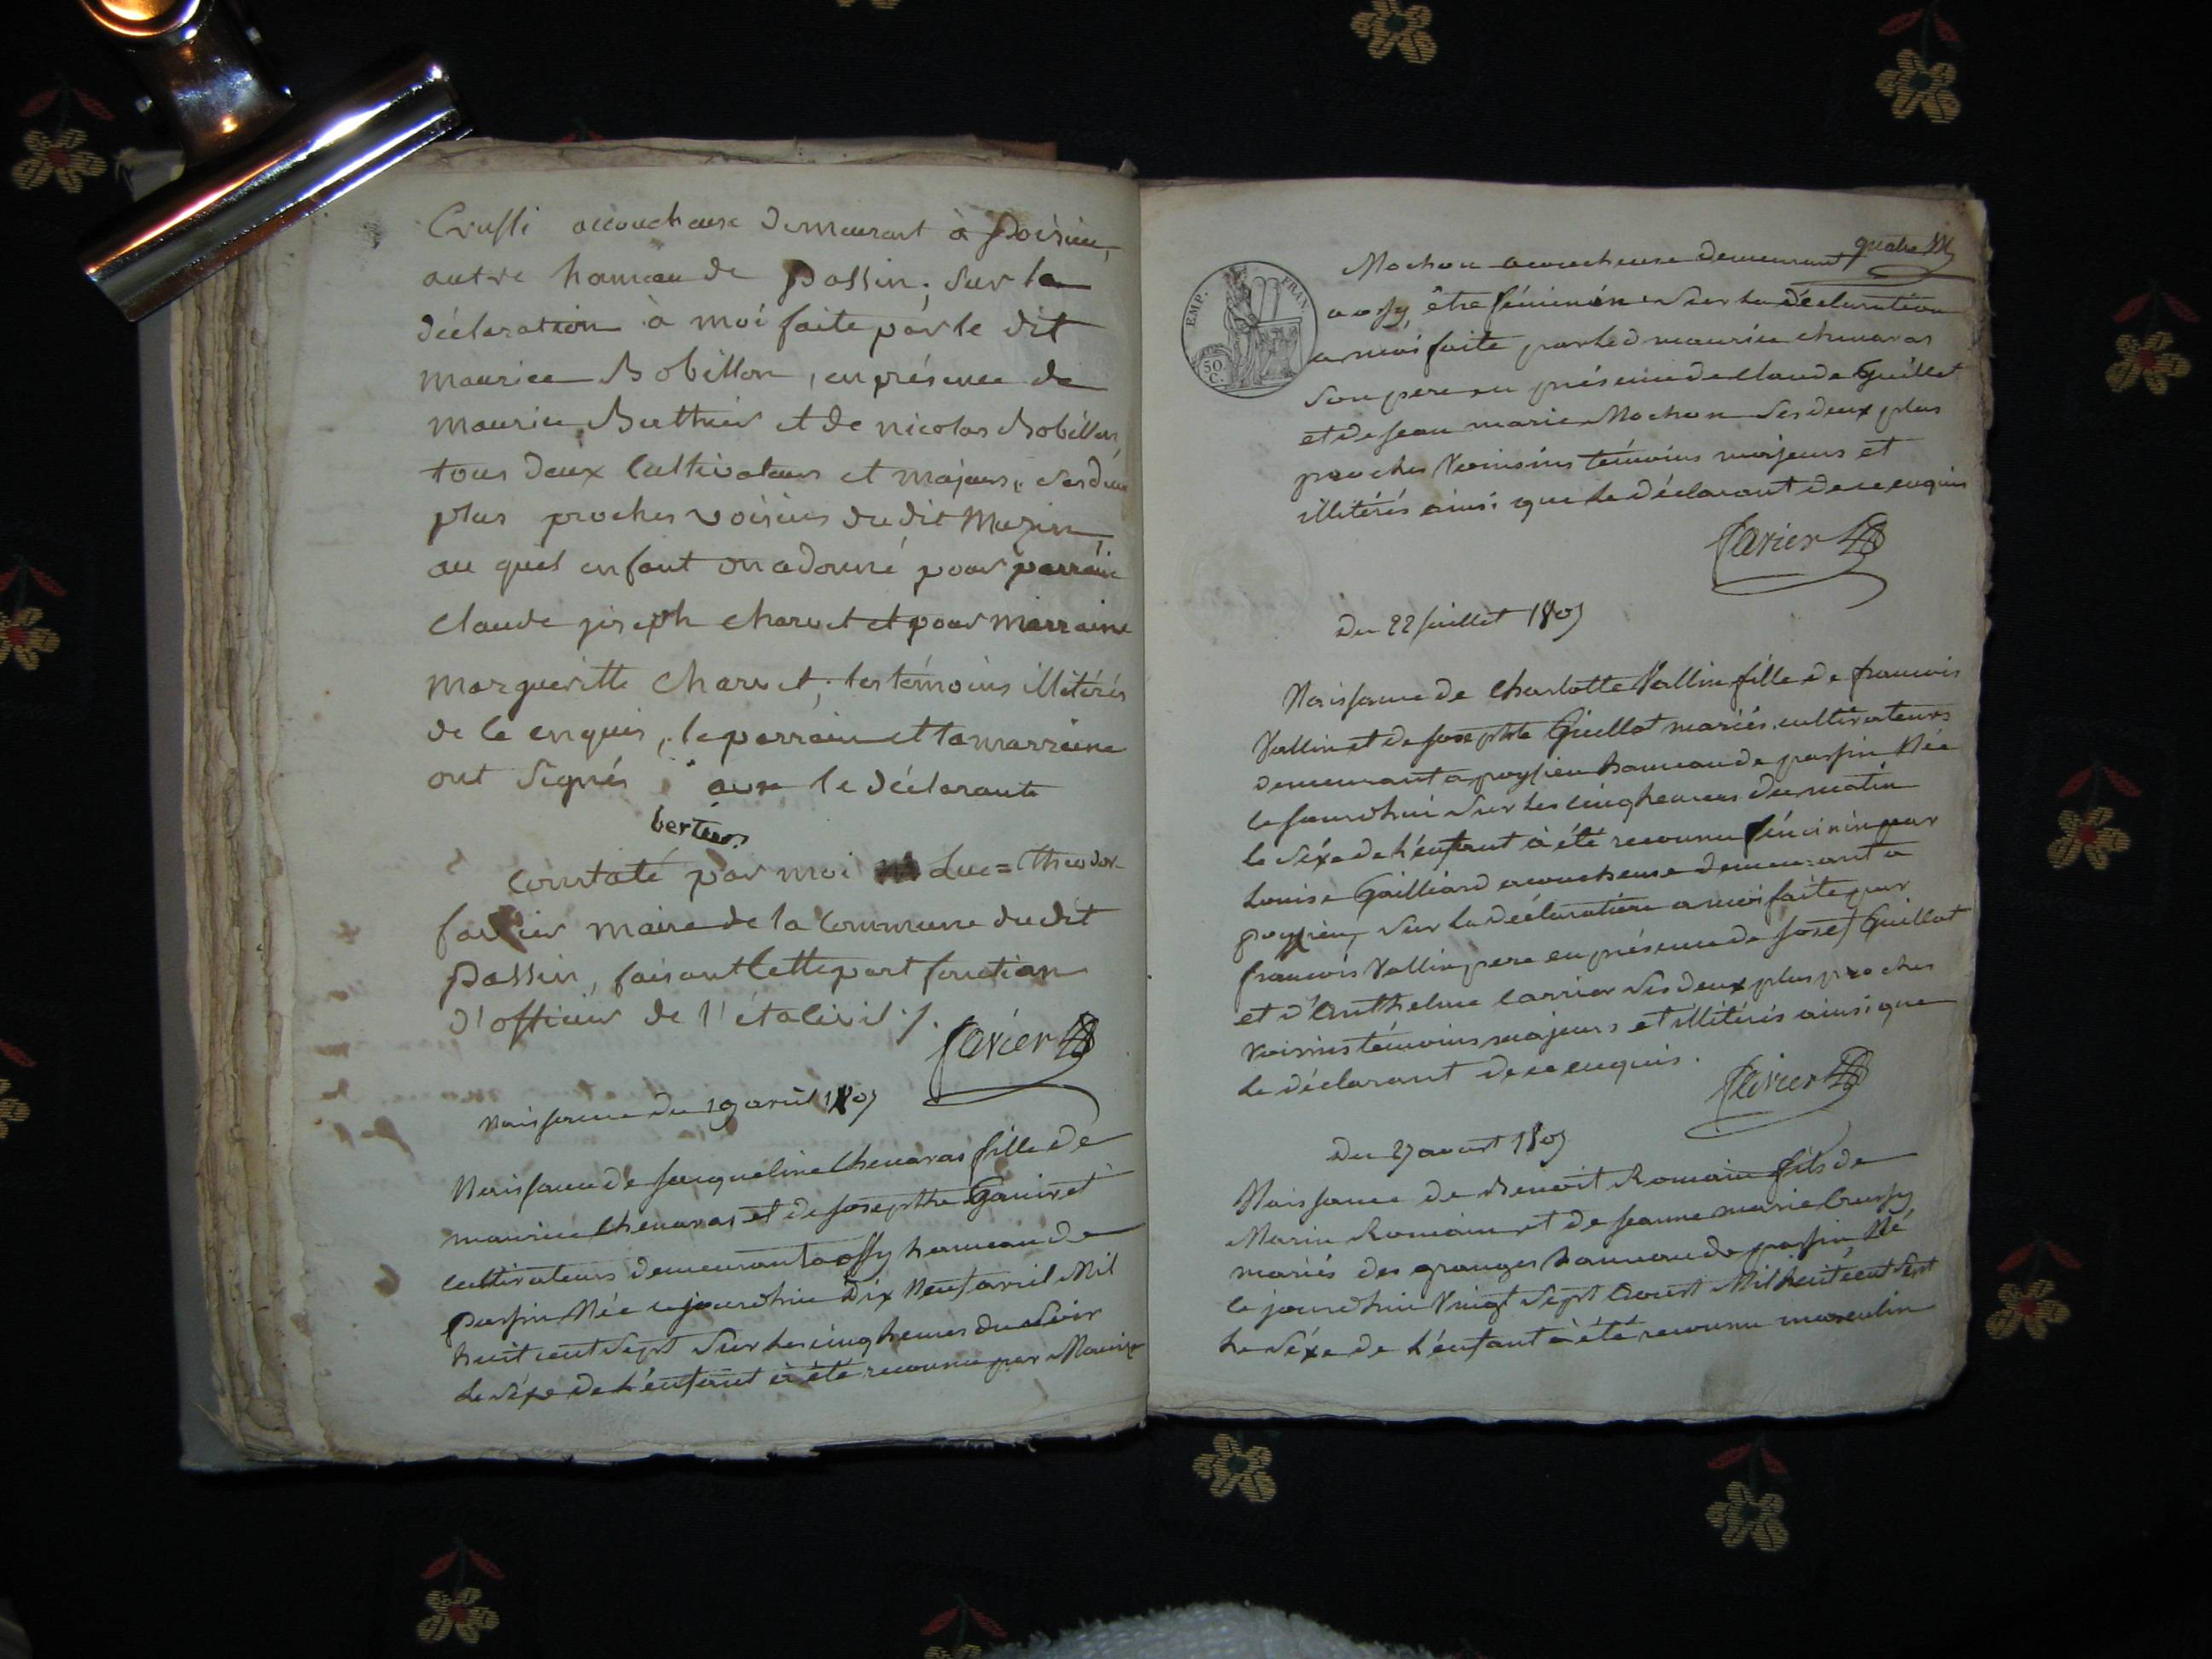 Crussi accoucheuse demeurant à Poisieu,
autre hameau de Passin; sur la
déclaration à moi faite par le dit
maurice Bobillon, en présence de
maurice Berthier et de nicolas Bobillon,
tous deux Cultivateurs et majeurs, ses deux
plus proches voisins du dit Mazin,
au quel enfant on a donné pour parrain
Claude joseph Charvet et pour marraine
margueritte Charvet; les témoins illitérés
de ce enquis, le parrain et la marraine
ont signés avec le déclarants
bertier
Constaté par moi Luc=Theodor
favier maire de la Commune du dit
Passin, faisant cette part fonction
d'officier de l'état civil ./.
favier
Naissance du 19 avril 1807
Naissance de jacqueline Chenavas fille de
maurice Chenavas et de josephte Ganivet
cultivateurs demeurant a ossy hameau de
passin Née ce jourdhui Dix Neuf avril Mil
huit cent Sept Sur les cinq heures du Soir
le séxe de l'enfant à été reconnu par Maurize
quatre
EMP. FRAN.
50 C.
Mochon acoucheuse demeurant
a ossy, être féminin. Sur la déclaration
a moi faite par led maurice chenavas
Son pere en présence de Claude Guillot
et de jean marie Mochon Ses deux plus
proches Voinsins témoins majeurs et
illitérés ainsi que le déclarant de ce enquis
favier
Du 22 juillet 1807
Naissance de Charlotte Vallin fille de francois
Vallin et de josephte Guillot mariés cultivateurs
demeurant a poysieu hameau de passin Née
ce jourdhui Sur les cinq heures du matin
le Séxe de l'enfant à été reconnu féminin par
Louise Gailliard acoucheuse demeurant a
poysieu, Sur la déclaration a moi faite par
francois Vallin pere en présence de josef Guillot
et d'Anthelme Carrier Ses deux plus proches
Voisins témoins majeurs et illitérés ainsi que
le déclarant de ce enquis.
favier
Du 27 aoust 1807
Naissance de Benoit Romain fils de
Marin Romain et de jeanne marie Crussy
mariés des granges hameau de passin, Né
ce jourdhui Vingt Sept Aoust Mil huit cent Sept
le Séxe de l'enfant à été reconnu masculin